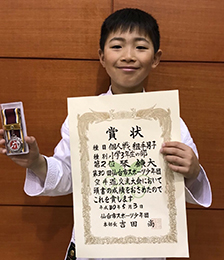 賞状
種目 個人戦 組手男子
種別 小学3年生の部
第2位
第30回仙台市スポーツ少年団
空手道交流大会において
頭書の成績をおさめたので
これを賞します
平成30年5月3日
仙台市スポーツ少年団
本部長 吉田 尚